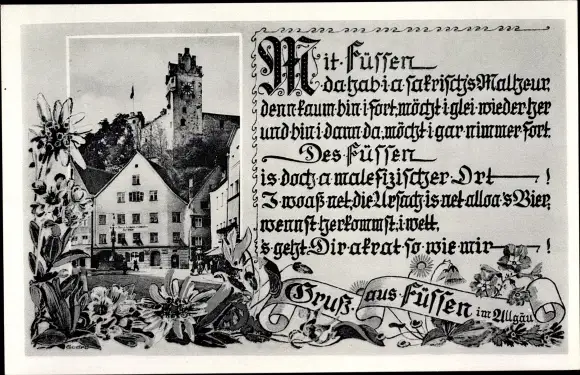 Mit Füssen
da hab i a sakrisch's Malheur,
denn kaum bin i fort, möcht i glei wieder her
und bin i dann da, möcht i gar nimmer fort.
Des Füssen
is doch a malefizischer Ort!
I woaß net, die Ursach is net alloa 's Bier,
wennst herkommst, i wett,
's geht Dir akrat so wie mir!
Gruß aus Füssen im Allgäu